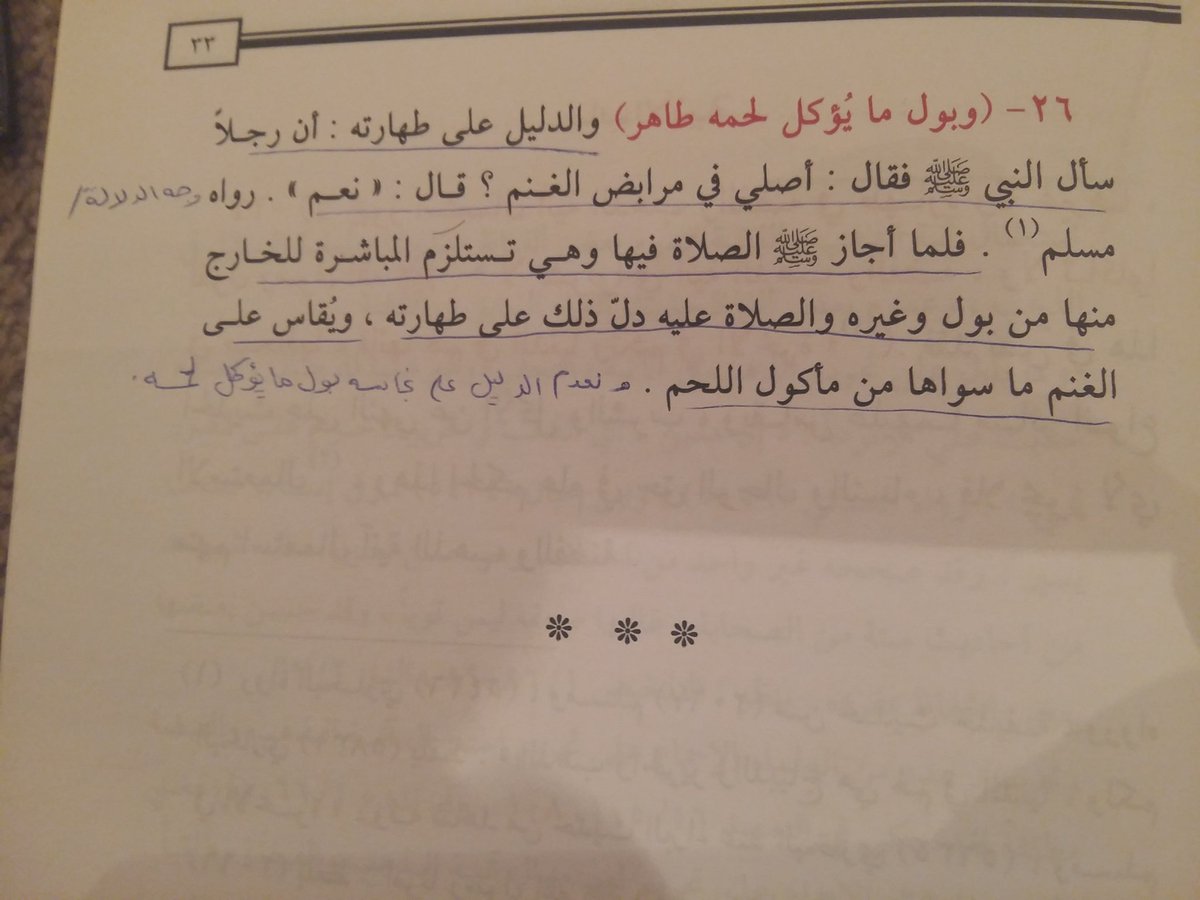 ٣٣
٢٦- (وبول ما يُؤكل لحمه طاهر) والدليل على طهارته : أن رجلاً
سأل النبي ﷺ فقال : أصلي في مرابض الغنم ؟ قال : «نعم» . رواه وجه الدلالة/
مسلم(١) . فلما أجاز ﷺ الصلاة فيها وهي تستلزم المباشرة للخارج
منها من بول وغيره والصلاة عليه دلّ ذلك على طهارته ، ويُقاس على
الغنم ما سواها من مأكول اللحم . و نعدم الدليل على نجاسه بول ما يؤكل لحمه .